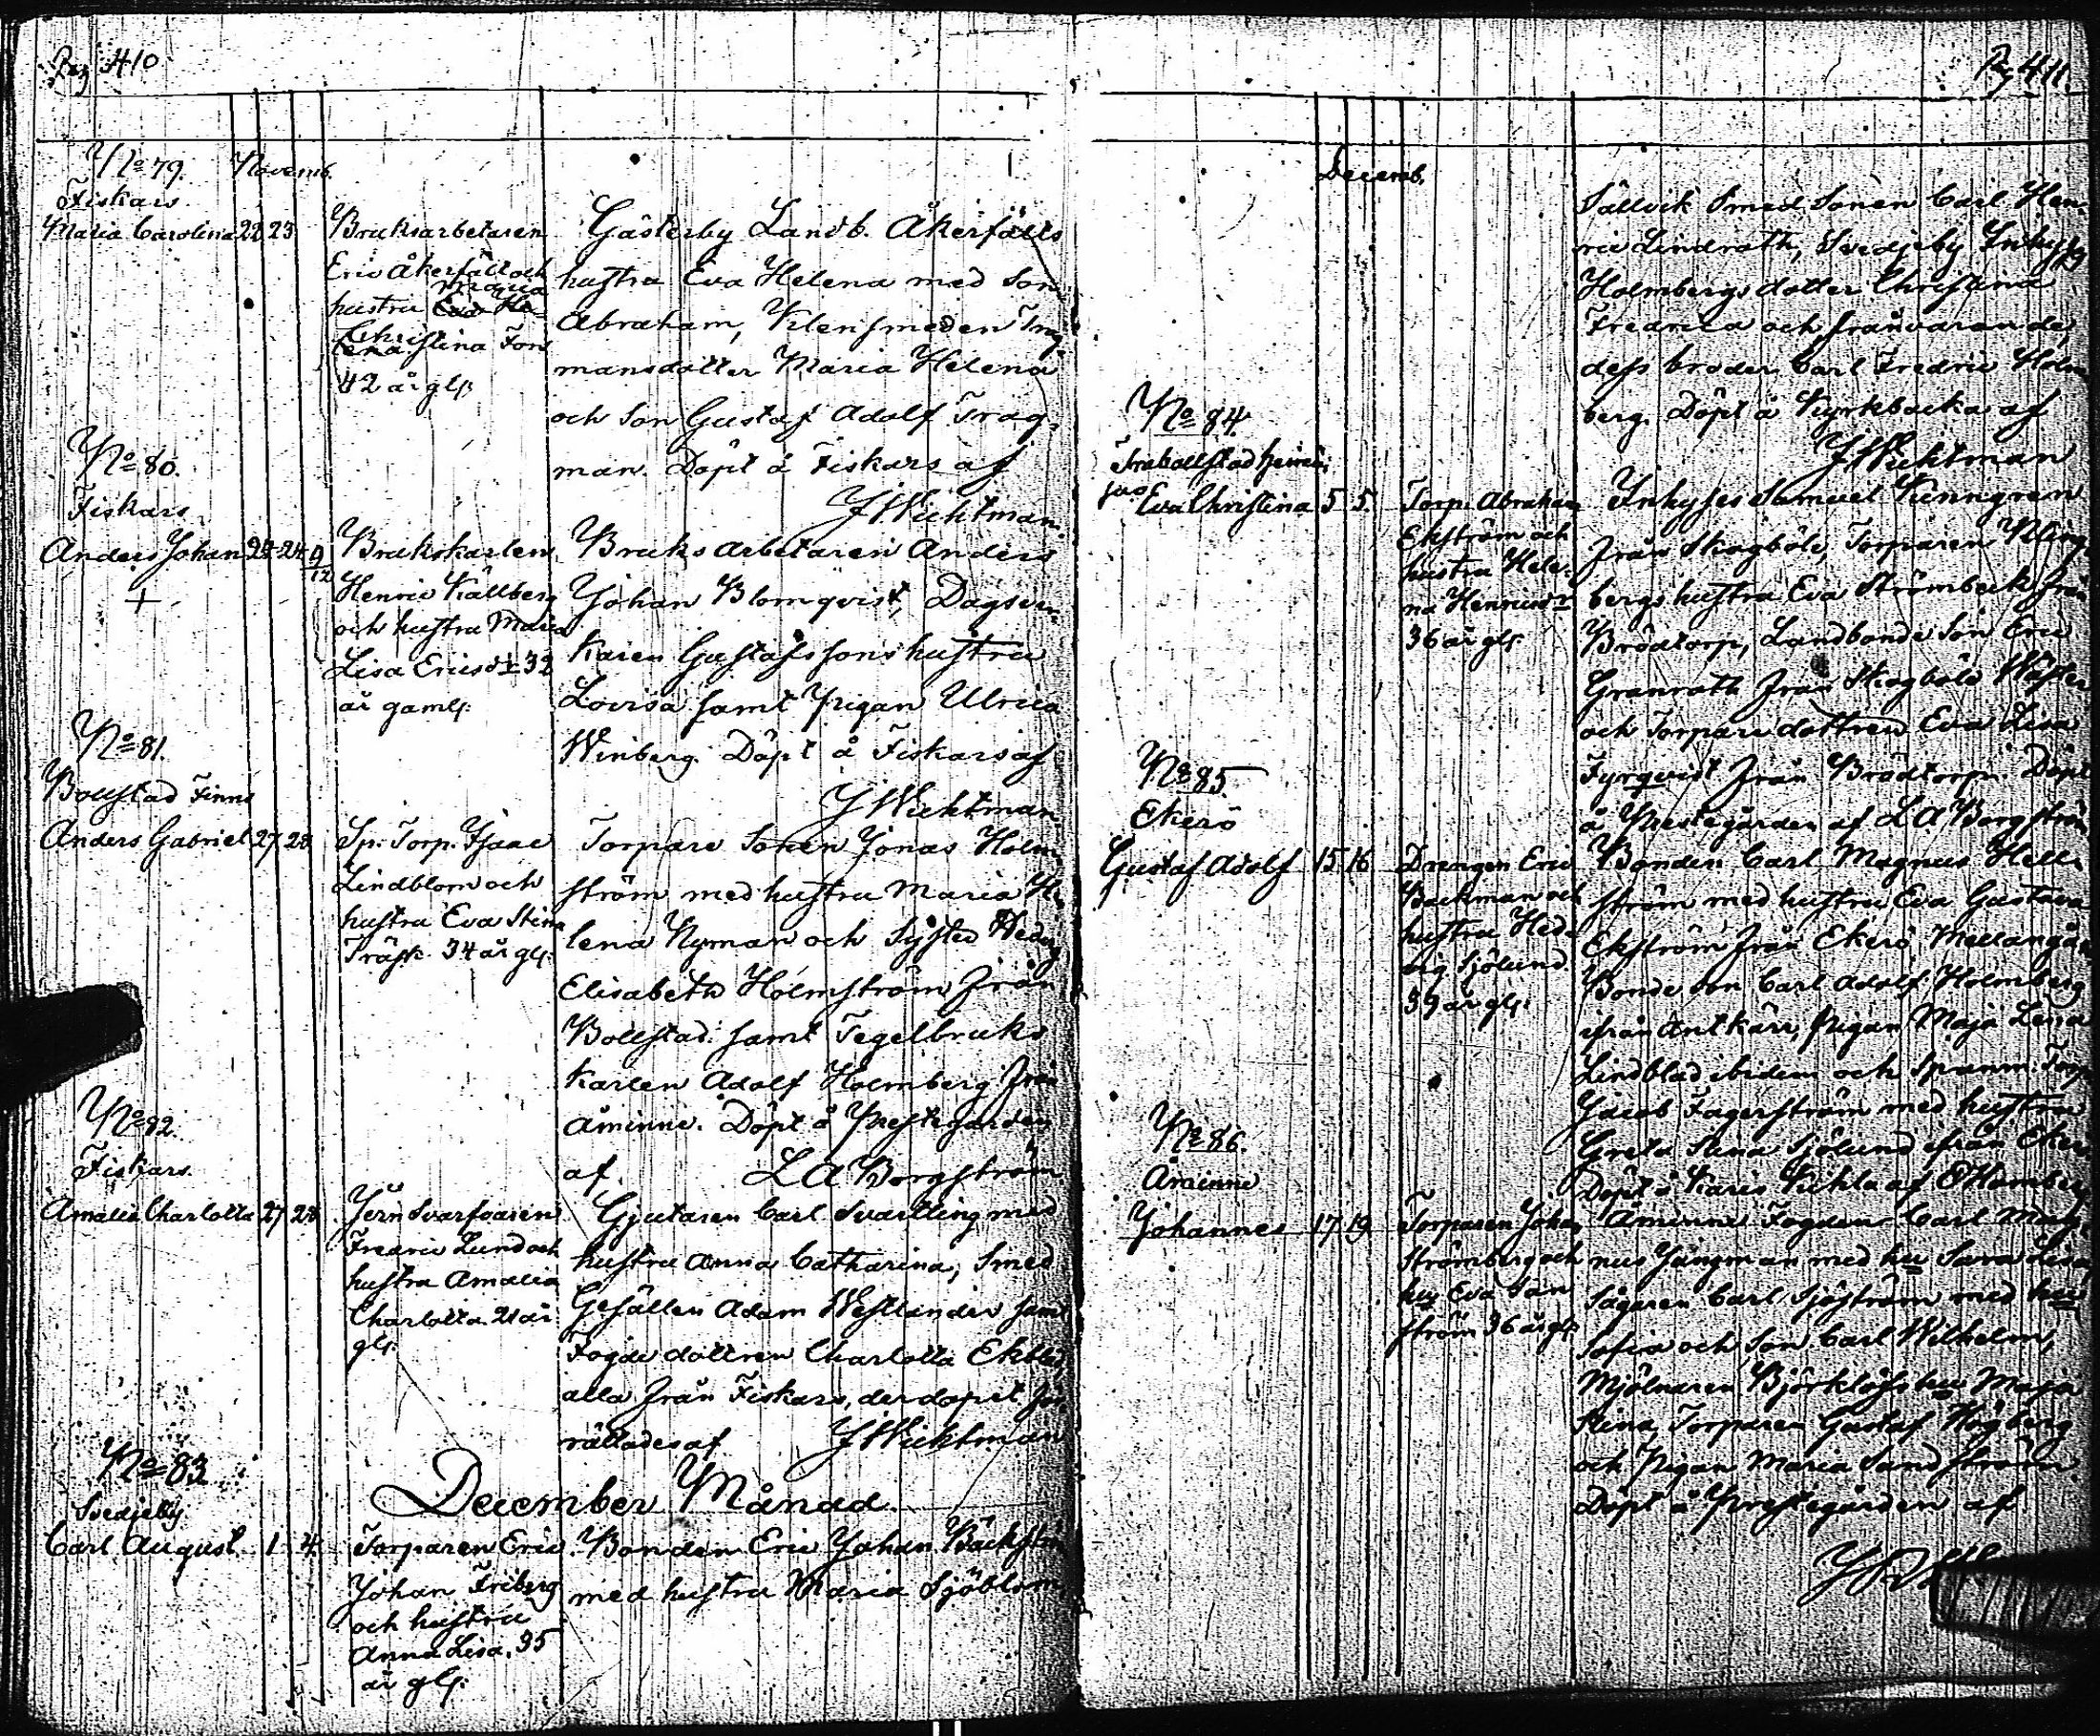 Pag 410
No 79. Novemb.
Fiskars
Maria Carolina 22 23
Bruksarbetaren
Eric Åkerfält och
hustru Maria
Christina Fors
42 år gl:
Gästerby Landb. Åkerfälts
hustru Eva Helena med Son
Abraham, Klensmeden Trag-
mansdotter Maria Helena
och Son Gustaf Adolf Trag-
man. Döpt å Fiskars af
J Wichtman.
No 80.
Fiskars
Anders Johan 22 24 9/12
+
Brukskarlen
Henric Källberg
och hustru Maria
Lisa Ericsdr 32
år gaml:
Bruksarbetaren Anders
Johan Blomqvist, Dagsver-
karen Gustafssons hustru
Lovisa samt pigan Ulrica
Winberg. Döpt å Fiskars af
J Wichtman.
No 81.
Bollstad Finns
Anders Gabriel 27 28
Sp: Torp. Isaac
Lindblom och
hustru Eva Stina
Träsk 34 år gl:
Torpare Sonen Jonas Holm-
ström med hustru Maria He-
lena Nyman och Syster Hedvig
Elisabeth Holmström från
Bollstad samt Tegelbruks
karlen Adolf Holmberg från
Åminne. Döpt å Prestegården
af L A Borgström.
No 82.
Fiskars
Amalia Charlotta 27 28
Jern Svarfvaren
Fredric Lund och
hustru Amalia
Charlotta 21 år
gl:
Gjutaren Carl Svartling med
hustru Anna Catharina, Smed
Gesällen Adam Westlander samt
Fogde dottren Charlotta Ekblad,
alla från Fiskars, der dopet för-
rättades af J Wichtman
No 83
December Månad
Svedjeby
Carl August 1 4
Torparen Eric
Johan Friberg
och hustru
Anna Lisa, 35
år gl:
Bonden Eric Johan Bäckström
med hustru Maria Sjöblom,
Pag 411.
Decemb.
Sällvik Smed Sonen Carl Hen-
ric Lindroth, Svedjeby Inhyses
Holmbergs dotter Christina
Fredrica och frånvarande,
dess broder Carl Fredric Holm-
berg. Döpt å Kyrkbacka af
J Wichtman
No 84.
Eva Christina 5 5.
Torp. Abraham
Ekström och
hustru Hele-
na Henricsdr
36 år gl:
Inhyses Samuel Kunngren
från Skogböle, Torparen Kling-
bergs hustru Eva Strömbeck från
Brödtorp, Landbonde Son Eric
Granroth från Skogböle Wäster
och Torpare dottren Eva Lisa
Fyrqvist från Brödtorp. Döpt
å Prestegården af L A Borgström
No 85.
Ekerö
Gustaf Adolf 15 16
Drengen Eric
Backman och
hustru Hed-
vig Sjölund
39 år gl:
Bonden Carl Magnus Hell-
ström med hustru Eva Gustava
Ekström från Ekerö Mellangård
Bonde son Carl Adolf Holmberg
ifrån Antkärr, pigan Maja Lena
Lindblad ibidem och Spanm. Torp
Jacob Fagerström med hustru
Greta Stina Sjölund ifrån Ekerö
Döpt i Karis
No 86.
Åminne
Johannes 17 19
Torparen Johan
Strömberg och
hu Eva Sand-
ström 36 år gl:
Åminne Fogden Carl Mag-
nus Jungman med hu Sara Lisa,
Sågaren Carl Sjöström med hu
Sofia och Son Carl Wilhelm,
Mjölnaren Björklöfs hu Maja
Stina, Torparen Gustaf Högberg
och Pigan Maria Sandström.
Döpt å Prestegården af